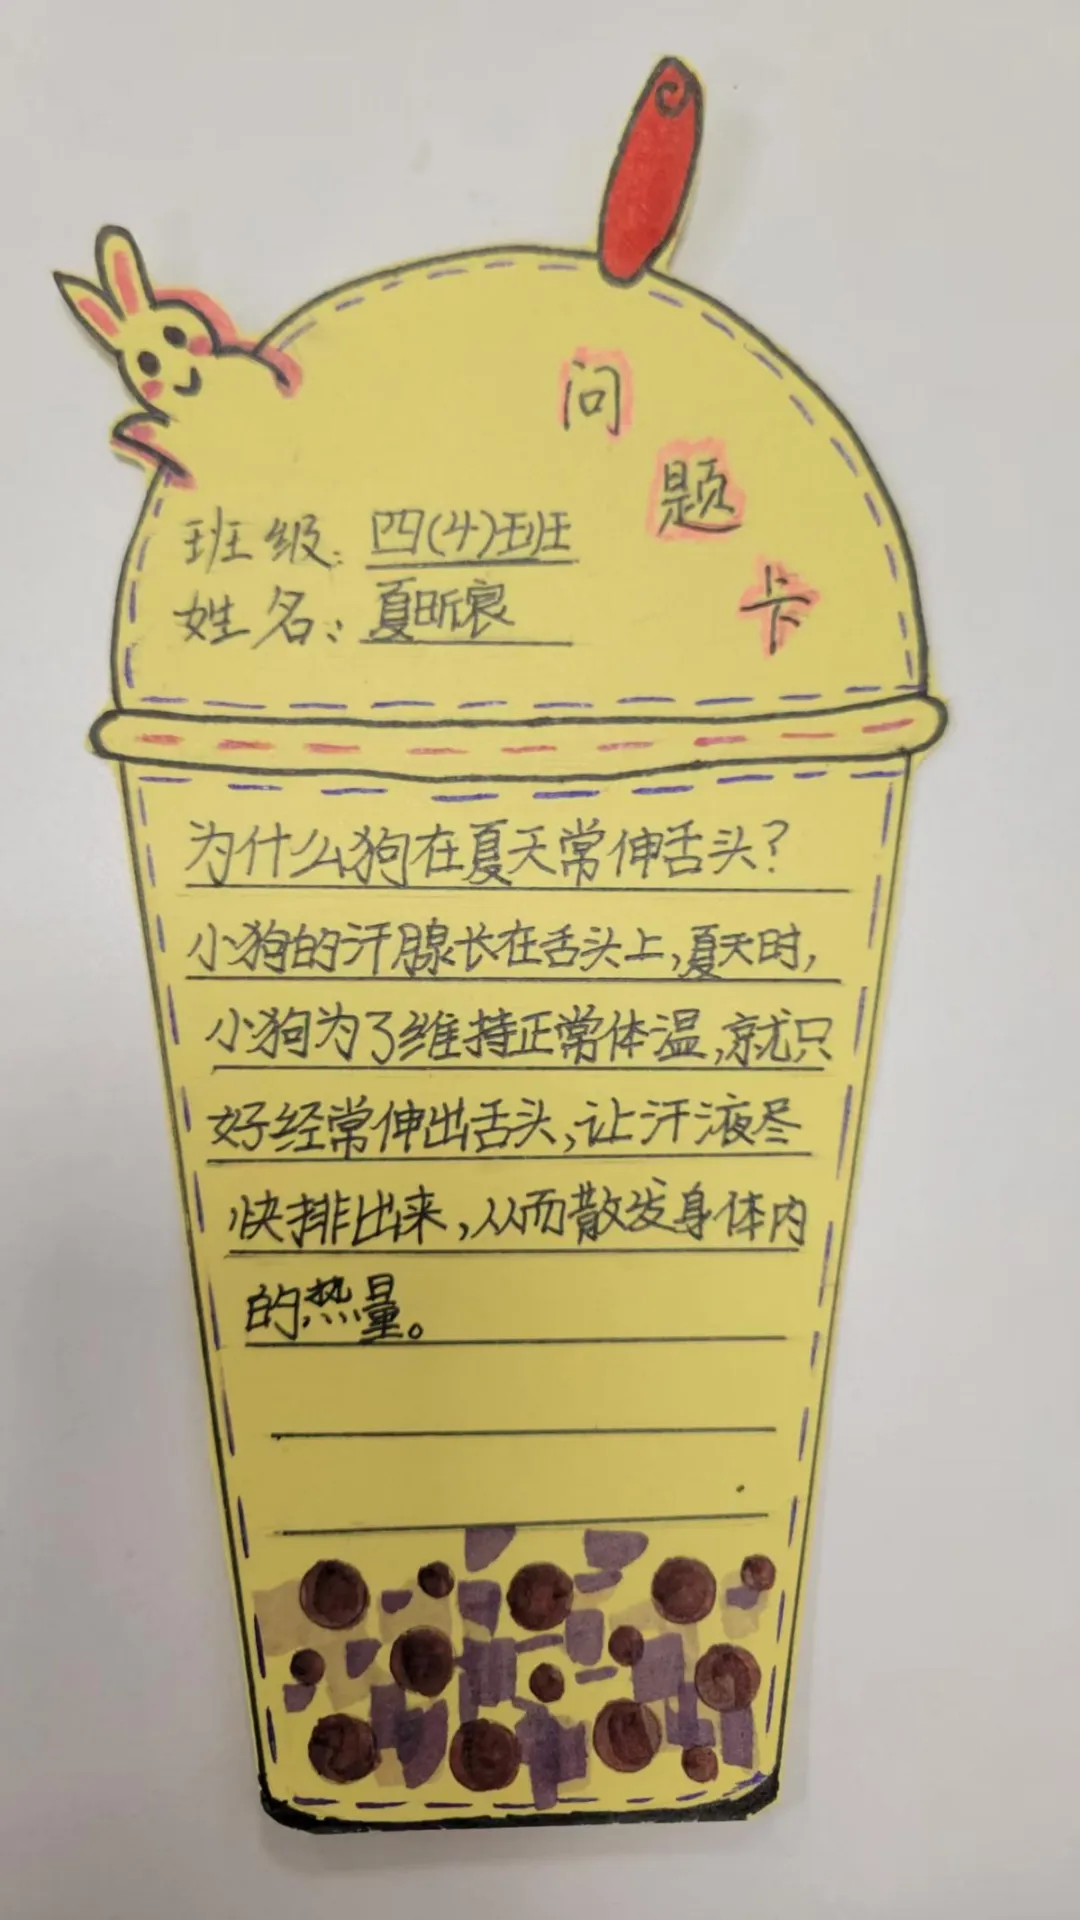 问题卡
班级:四(4)班
姓名:夏昕宸
为什么狗在夏天常伸舌头?
小狗的汗腺长在舌头上,夏天时,
小狗为了维持正常体温,就只
好经常伸出舌头,让汗液尽
快排出来,从而散发身体内
的热量。